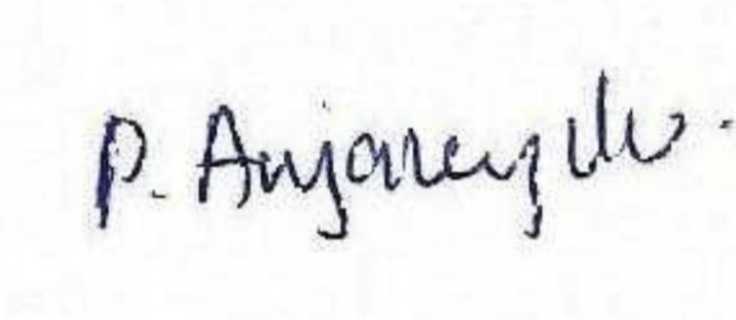 P. Anjaneyulu.